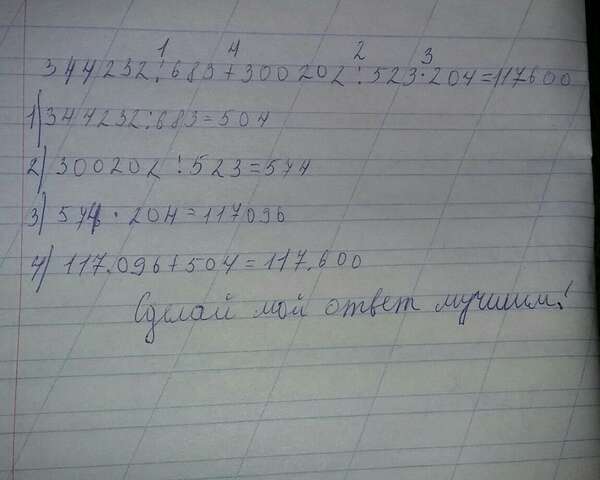 1 4 2 3
344232:683+300202:523·204=117600
1) 344232:683=504
2) 300202:523=574
3) 574·204=117096
4) 117.096+504=117.600
Сделай мой ответ лучшим!